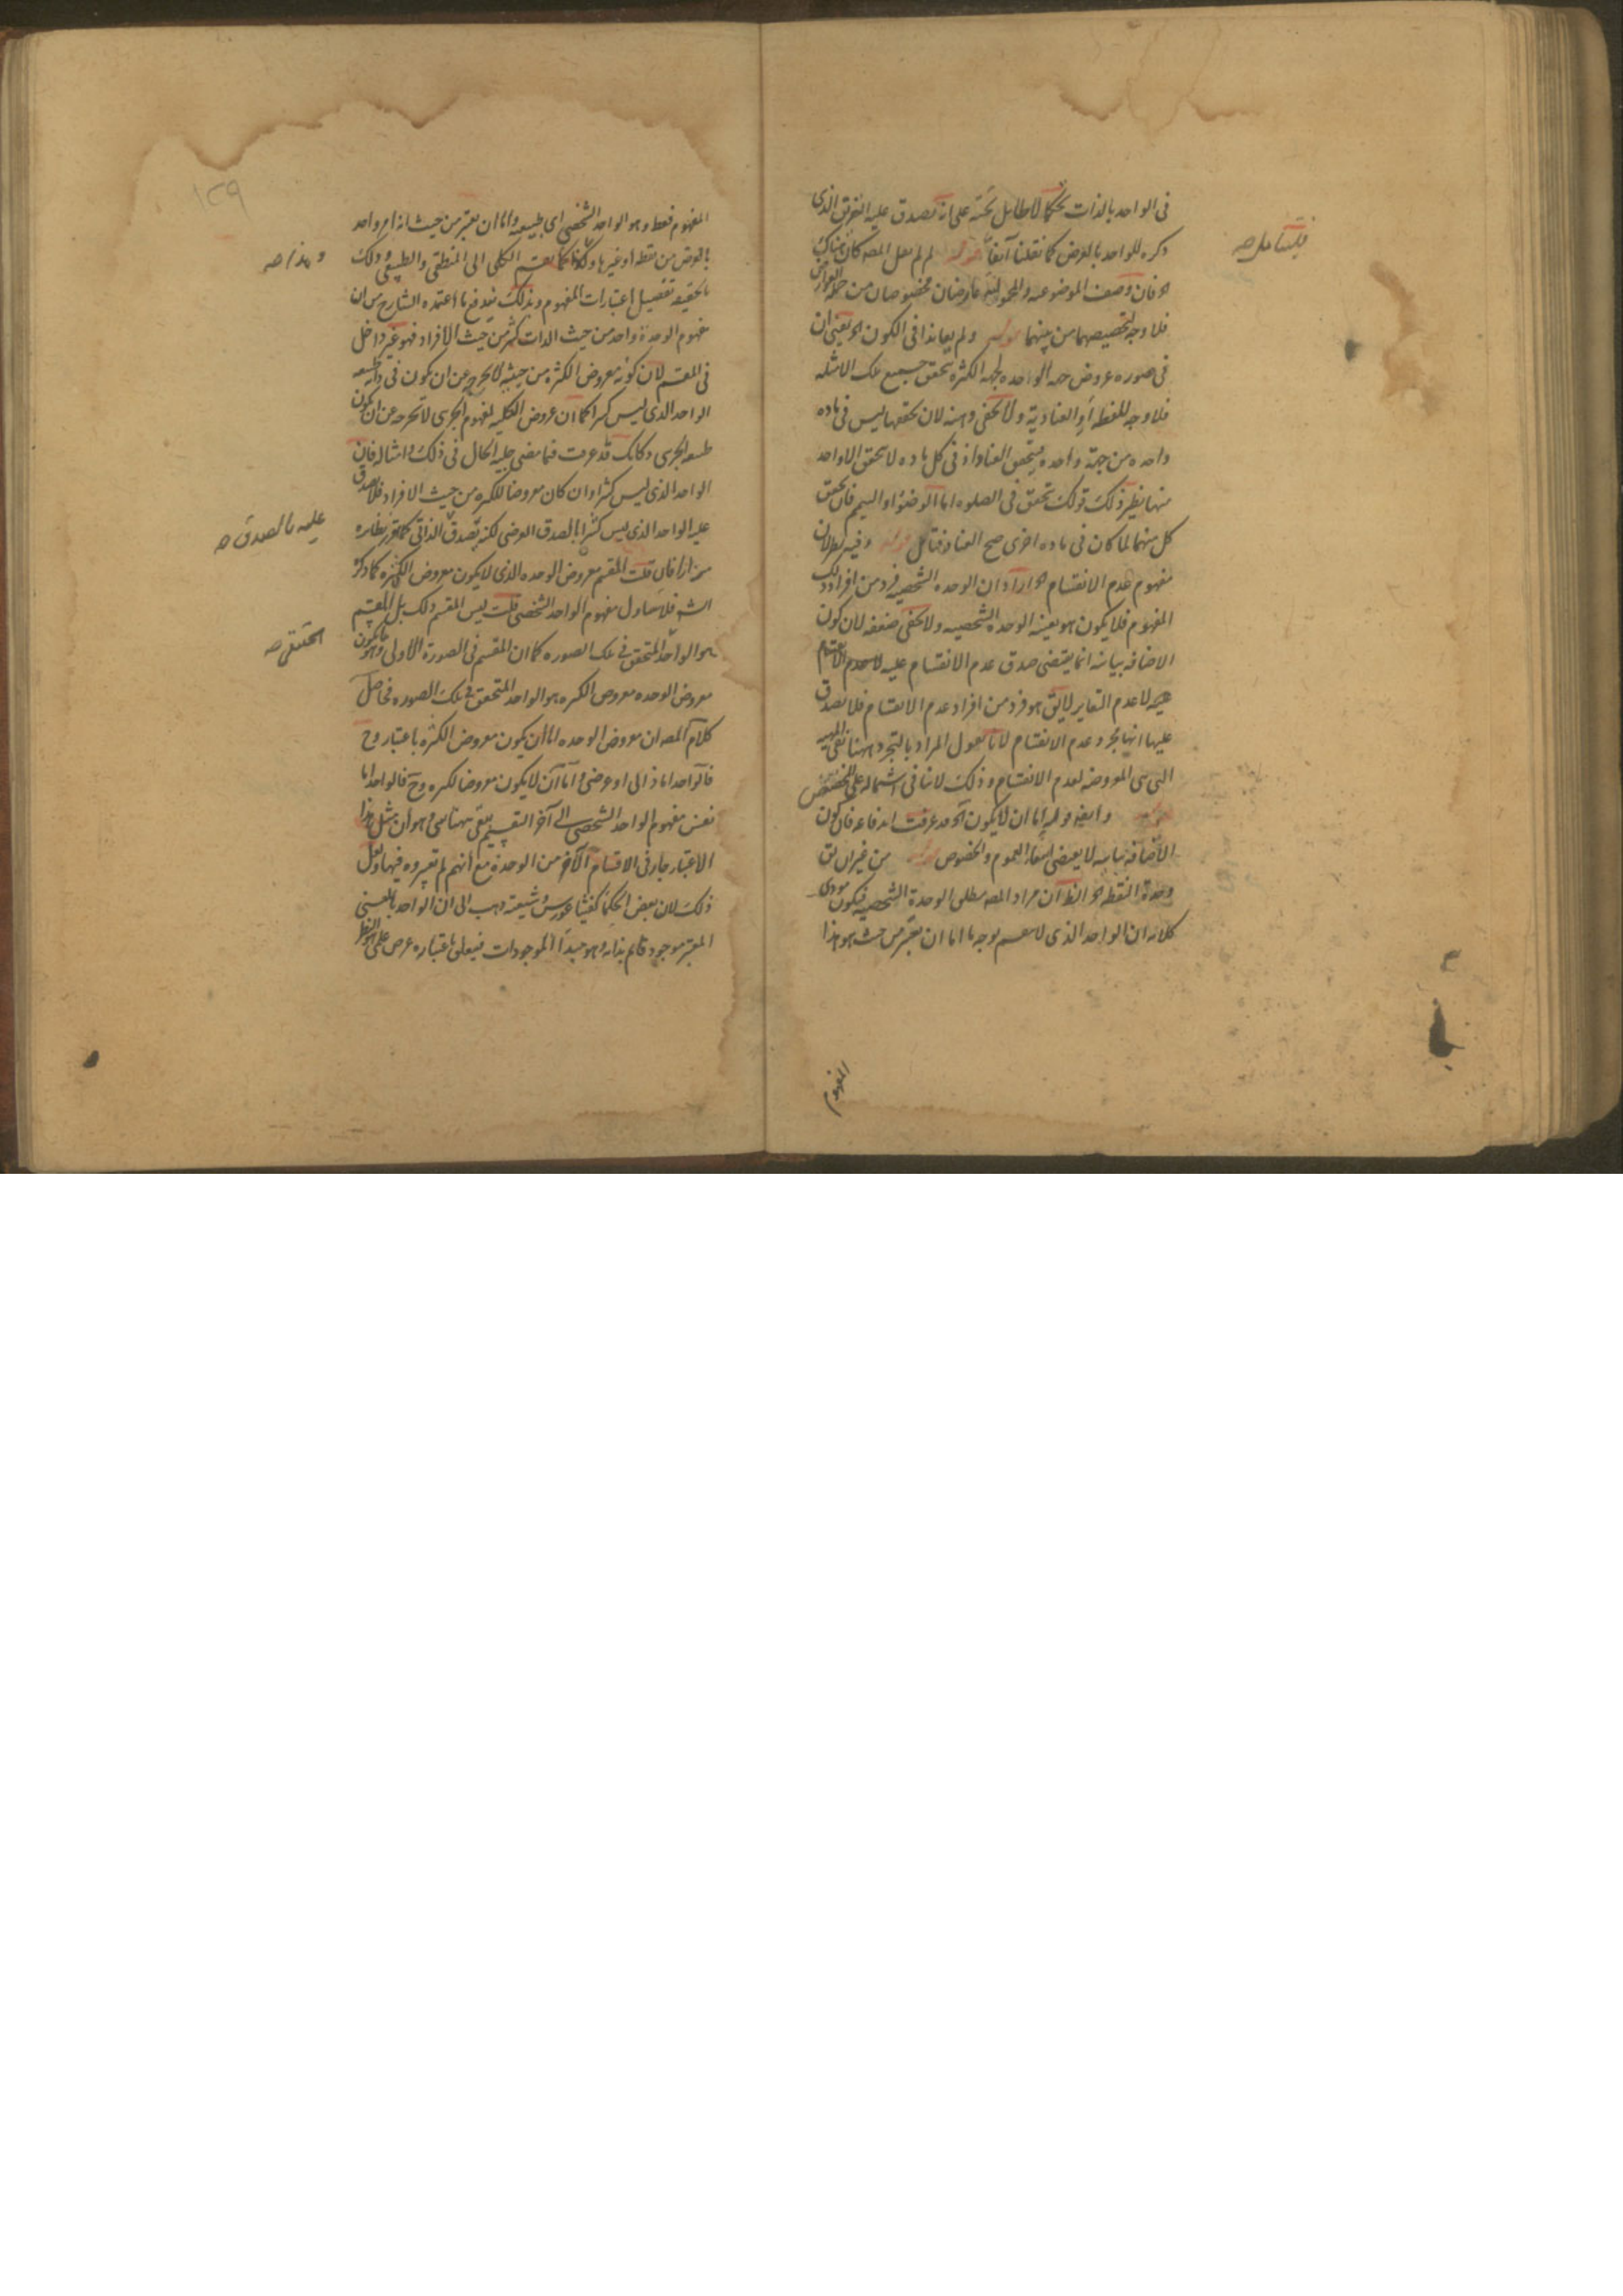 في الواحد بالذات تحكما لا طايل تحته على انه يصدق عليه التفريق الذي
ذكره للواحد بالعرض كما نقلنا آنفا قوله لم لم يقل المصه كان هناك
الخ فان وصف الموضوعيه والمحموليه عارضان مخصوصان من جملة العوارض
فلا وجه لتخصيصهما من بينهما قوله ولم يعاندا في الكون الخ يعني ان
في صوره عروض جهه الواحده لجهه الكثره يتحقق جميع تلك الامثله
فلا وجه للفظه او العناديه ولا يخفى وهنه لان تحققها ليس في ماده
واحده من جهة واحده يتحقق العناد اذ في كل ماده لا يتحقق الا واحد
منها نظير ذلك قولك تحقق في الصلوه اما الوضوء او التيمم فان تحقق
كل منهما لما كان في ماده اخرى صح العناد فتامل قوله وفيه نظر لان
مفهوم عدم الانقسام الخ اراد ان الوحده الشخصيه فرد من افراد ذلك
المفهوم فلا يكون هو بعينه الوحده الشخصيه ولا يخفى ضعفه لان كون
الاضافه بيانيه انما يقتضي صدق عدم الانقسام عليه لا عدم الانقسام
لا عدم التغاير لا يق هو فرد من افراد عدم الانقسام فلا يصدق
عليها انها مجرد عدم الانقسام لانا نقول المراد بالتجرد ههنا نفي المهيه
التي هي المعروضه لعدم الانقسام وذلك لا ينافي اشتماله على الخصوص
قوله وايضا قوله اما ان لا يكون الخ قد عرفت اندفاعه فان كون
الاضافه بيانيه لا يقتضي انتفاء العموم والخصوص قوله من غير ان يق
وحدة النقطه الخ الظ ان مراد المصه مطلق الوحدة الشخصيه فيكون مودى
كلامه ان الواحد الذي لا ينقسم بوجه ما اما ان يعتبر من حيث هو هذا
فليتامل صه
المفهوم
١٢٩
المفهوم فقط وهو الواحد الشخصي اي طبيعيه واما ان يعتبر من حيث انه امر واحد
بالعرض من نقطه او غيرها وهكذا كما يقسم الكلي الى المنطقي والطبيعي وذلك
بالحقيقه تفصيل اعتبارات المفهوم وبذلك يندفع ما اعتمده الشارح من ان
مفهوم الوحدة واحد من حيث الذات كثير من حيث الافراد فهو غير داخل
في المقسم لان كونه معروض الكثره من حيثيه لا يخرجه عن ان يكون في ذاته طبيعه
الواحد الذي ليس كثيرا كما ان عروض الكليه لمفهوم الجزئي لا يخرجه عن ان يكون
طبيعه الجزئي وكانك قد عرفت فيما مضى جليه الحال في ذلك وامثاله فان
الواحد الذي ليس كثيرا وان كان معروضا للكثره من حيث الافراد فلا يصدق
عليه الواحد الذي ليس كثيرا بالصدق العرضي لكنه يصدق الذاتي كما تقرر نظايره
مرارا فان قلت المقسم معروض الوحده الذي لا يكون معروض الكثره كما ذكره
الشه فلا يتناول مفهوم الواحد الشخصي قلت ليس المقسم ذلك بل المقسم
هو الواحد المتحقق في تلك الصوره كما ان المقسم في الصورة الاولى وهو ما يكون
معروض الوحده معروض الكثره هو الواحد المتحقق في تلك الصوره فحاصل
كلام المصه ان معروض الوحده اما ان يكون معروض الكثره باعتبار وح
فالواحد اما ذاتي او عرضي واما ان لا يكون معروضا للكثره وح فالواحد اما
نفس مفهوم الواحد الشخصي الى آخر التقسيم بقي ههنا شي وهو ان مثل هذا
الاعتبار جار في الاقسام الاخر من الوحدة مع انهم لم يعتبروه فيها ولعل
ذلك لان بعض الحكما كفيثاغورس وشيعته ذهب الى ان الواحد بالمعنى
المعتبر موجود قائم بذاته وهو مبدا الموجودات فيعلق باعتباره غرض علمي
وبهذا صه
عليه بالصدق صه
الحقيقي صه